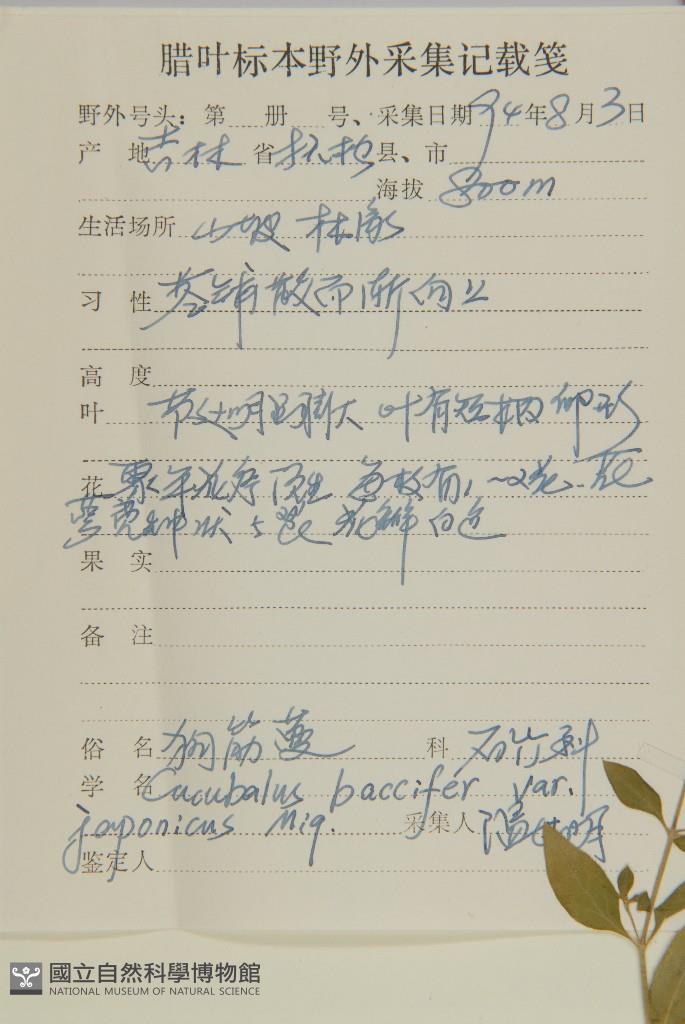 腊叶标本野外采集记载笺
野外号头：第 册 号、采集日期 94年8月3日
产 地 吉林 省 抚松 县、市
海拔 800m
生活场所 山坡 林缘
习 性 茎铺散而渐向上
高 度
叶 节处明显膨大 叶有短柄 卵形
花 聚伞花序顶生 每枝有1~2花 花
萼宽钟状 5裂 花瓣白色
果 实
备 注
俗 名 狗筋蔓 科 石竹科
学 名 Cucubalus baccifer var.
japonicus Miq. 采集人 明
鉴定人
國立自然科學博物館
NATIONAL MUSEUM OF NATURAL SCIENCE